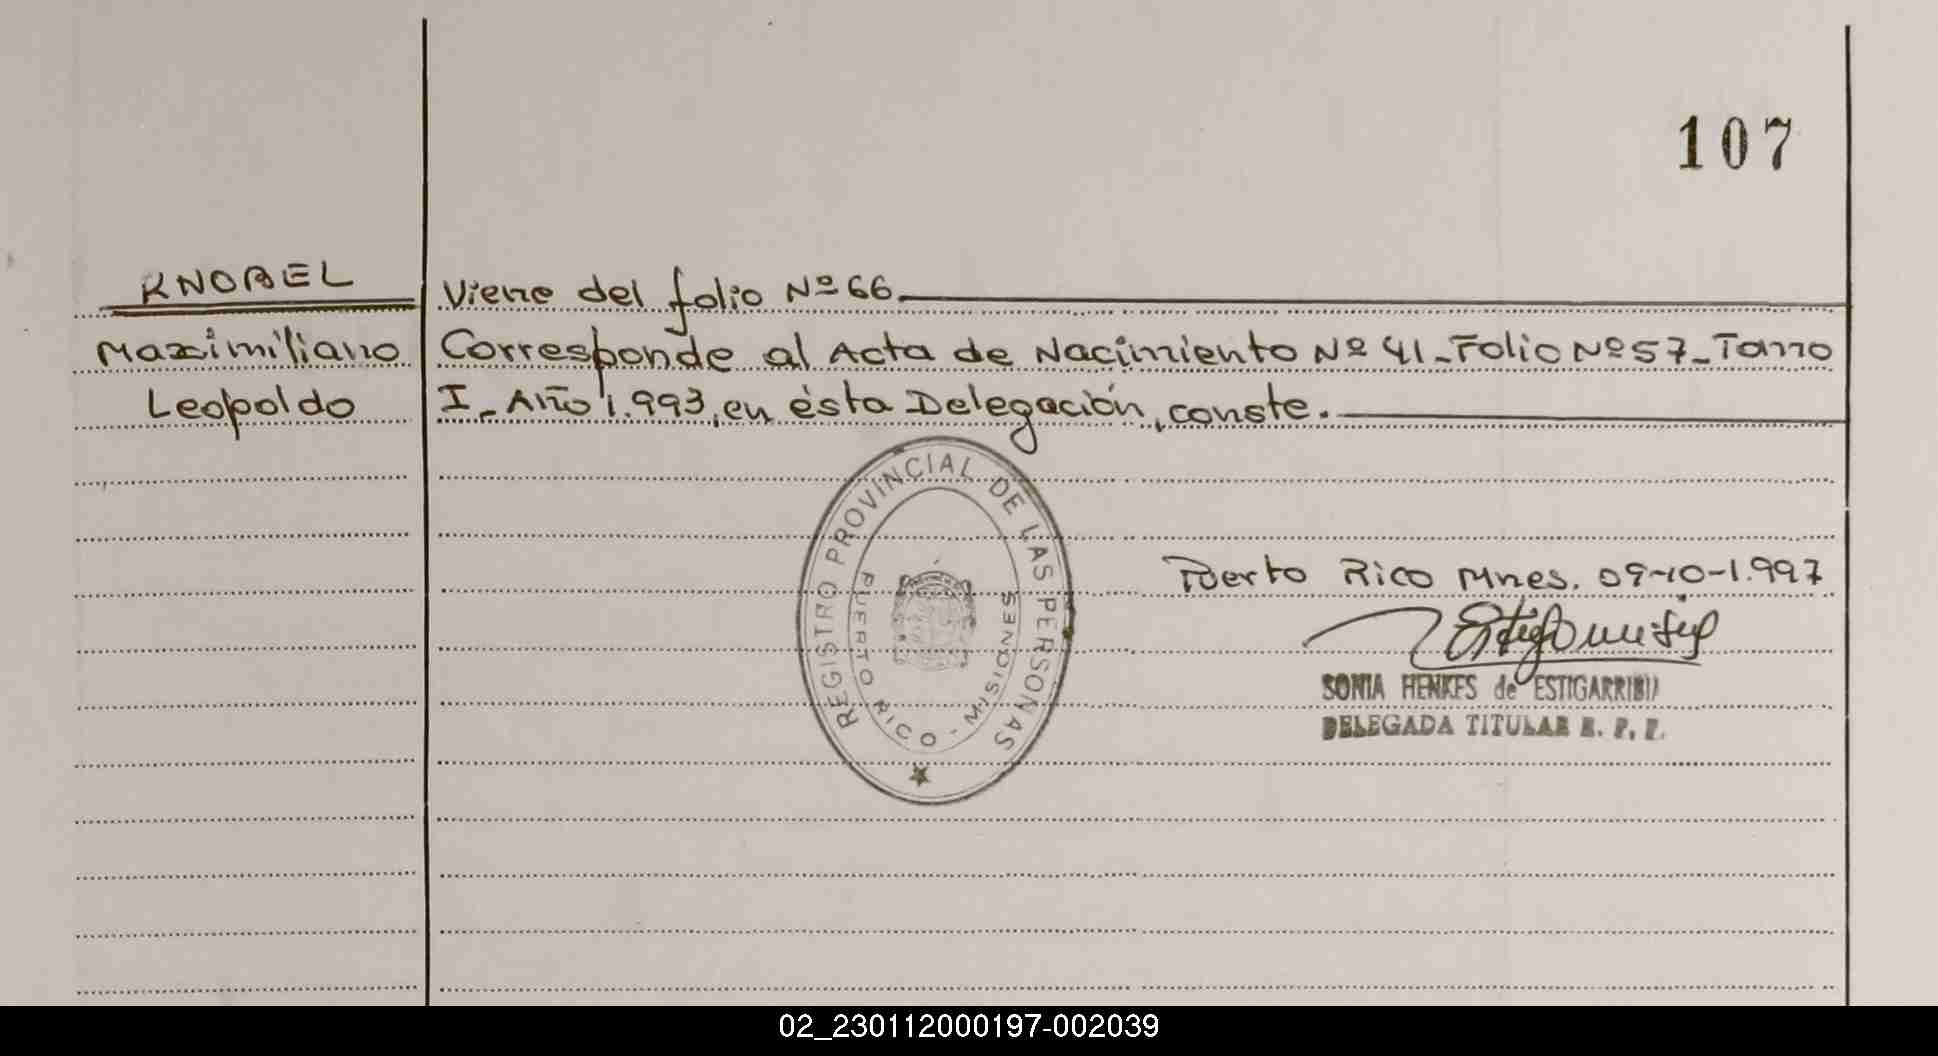 107
KNOBEL
Viene del folio Nº 66.
Maximiliano
Corresponde al Acta de Nacimiento Nº 41 - Folio Nº 57 - Tomo
Leopoldo
I - Año 1.993, en ésta Delegación, conste.
REGISTRO PROVINCIAL DE LAS PERSONAS
PUERTO RICO - MISIONES
Puerto Rico Mnes. 09-10-1.997
SONIA HENKES de ESTIGARRIBIA
DELEGADA TITULAR R. P. P.
02_230112000197-002039